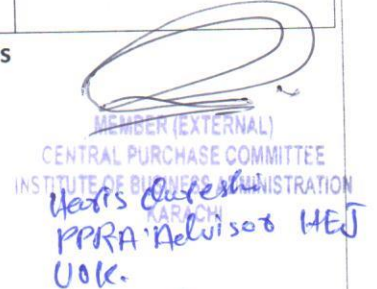 s
MEMBER (EXTERNAL)
CENTRAL PURCHASE COMMITTEE
INSTITUTE OF BUSINESS ADMINISTRATION
KARACHI
Haris Qureshi
PPRA Advisor HEJ
UOK.